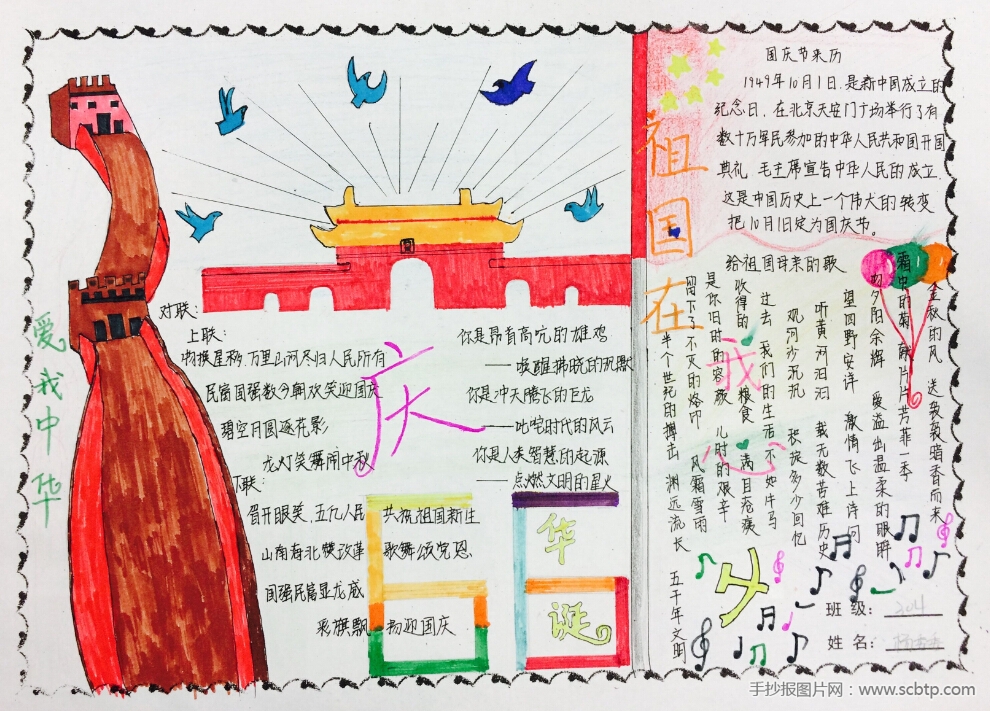 爱我中华
对联:
上联:
物换星移,万里山河尽归人民所有
民富国强数今朝欢笑迎国庆
碧空月圆逐花影
龙灯笑舞闹中秋
下联:
眉开眼笑,五九人民共祝祖国新生
山南海北赞改革歌舞颂党恩
国强民富显龙威
彩旗飘扬迎国庆
你是昂首高吭的雄鸡
——唤醒拂晓的沉默
你是冲天腾飞的巨龙
——叱咤时代的风云
你是人类智慧的起源
——点燃文明的星火
庆
华诞
祖国在我心中
国庆节来历
1949年10月1日,是新中国成立的
纪念日,在北京天安门广场举行了有
数十万军民参加的中华人民共和国开国
典礼,毛主席宣告中华人民的成立.
这是中国历史上一个伟大的转变
把10月1日定为国庆节。
给祖国母亲的歌
金秋的风 送袅袅暗香而来
霜中的菊 片片芳菲一季
夕阳余辉 爱溢出温柔的眼眸
望四野安详 激情飞上诗问
听黄河汩汩 载无数苦难历史
观河沙沉沉 积淀多少回忆
过去 我们的生活不如牛马
收得的 粮食 满目疮痍
是你旧时的容颜 儿时的艰辛
留下了不灭的烙印 风霜雪雨
半个世纪的搏击 渊远流长 五千年文明
班级:
姓名:
手抄报图片网:www.scbtp.com